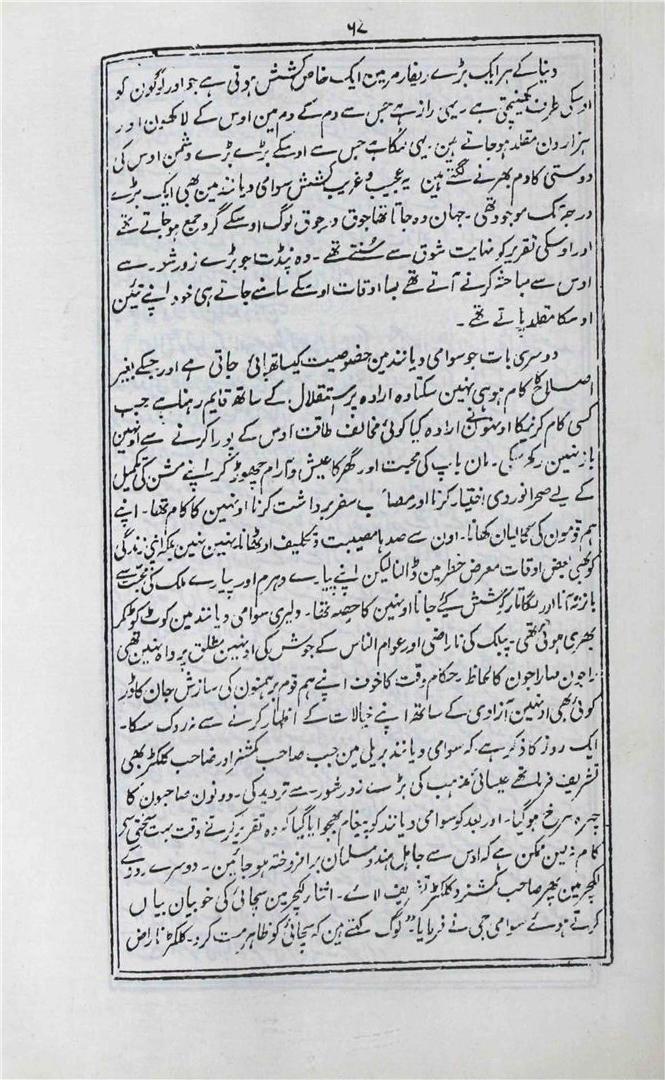 ۶۸
دنیا کے ہر ایک بڑے ریفارمر مین ایک خاص کشش ہوتی ہے جو اور لوگون کو
اوسکی طرف کھینچتی ہے ۔ یہی راز ہے جس سے دم کے دم مین اوس کے لاکھون اور
ہزارون مقلد ہو جاتے ہین ۔ یہی نگاہ ہے جس سے اوسکے بڑے بڑے دشمن اوس کی
دوستی کا دم بھرنے لگتے ہین یہ عجیب و غریب کشش سوامی دیانند مین بھی ایک بڑے
درجہ تک موجود تھی ۔ جہان وہ جاتا تھا جوق در جوق لوگ اوسکے گرد جمع ہو جاتے تھے
اور اوسکی تقریر کو نہایت شوق سے سُنتے تھے ۔ وہ پنڈت جو بڑے زور شور سے
اوس سے مباحثہ کرنے آتے تھے بسا اوقات اوسکے سامنے جاتے ہی خود اپنے تیئن
اوسکا مقلد پاتے تھے ۔
دوسری بات جو سوامی دیانند مین خصوصیت کیساتھ پائی جاتی ہے اور جسکے بغیر
اصلاح کا کام ہو ہی نہین سکتا وہ ارادہ پر استقلال کے ساتھ قایم رہنا ہے جب
کسی کام کرنیکا اونہونے ارادہ کیا کوئی مخالف طاقت اوس کے پورا کرنے سے اونہین
باز نہین رکھ سکی ۔ مان باپ کی محبت اور گھر کا عیش و آرام چھوڑ کر اپنے مشن کی تکمیل
کے لیے صحرا نوردی اختیار کرنا اور مصائب سفر برداشت کرنا اونہین کا کام تھا ۔ اپنے
ہم قومون کی گالیان کھانا ۔ اون سے صدہا مصیبت و تکلیف اوٹھانا نہین نہین بلکہ اپنی زندگی
کو بھی بعض اوقات معرض خطر مین ڈالنا لیکن اپنے پیارے دہرم اور پیارے ملک کی محبت سے
باز نہ آنا اور لگاتار کوشش کیے جانا اونہین کا حصہ تھا ۔ دلیری سوامی دیانند مین کوٹ کوٹ کر
بھری ہوئی تھی ۔ پبلک کی ناراضی اور عوام الناس کے جوش کی اونہین مطلق پرواہ نہین تھی
راجون مہاراجون کا لحاظ ۔ حکام وقت کا خوف اپنے ہم قوم برہمنون کی سازش جان کا ڈر
کوئی بھی اونہین آزادی کے ساتھ اپنے خیالات کے اظہار کرنے سے نہ روک سکا ۔
ایک روز کا ذکر ہے کہ سوامی دیانند بریلی مین جب صاحب کمشنر اور صاحب کلکٹر بھی
تشریف فرما تھے عیسائی مذہب کی بڑے زور شور سے تردید کی ۔ دونون صاحبون کا
چہرہ سرخ ہوگیا ۔ اور بعد کو سوامی دیانند کو پیغام بھجوایا گیا کہ وہ تقریر کرتے وقت بہت سختی سے
کام نہ لین ممکن ہے کہ اوس سے جاہل ہندو مسلمان برافروختہ ہو جائین ۔ دوسرے روز کے
لکچر مین پھر صاحب کمشنر و کلکٹر تشریف لائے ۔ اثنار لکچر مین سچائی کی خوبیان بیان
کرتے ہوئے سوامی جی نے فرمایا ” لوگ کہتے ہین کہ سچائی کو ظاہر مت کرو ۔ کلکٹر ناراض